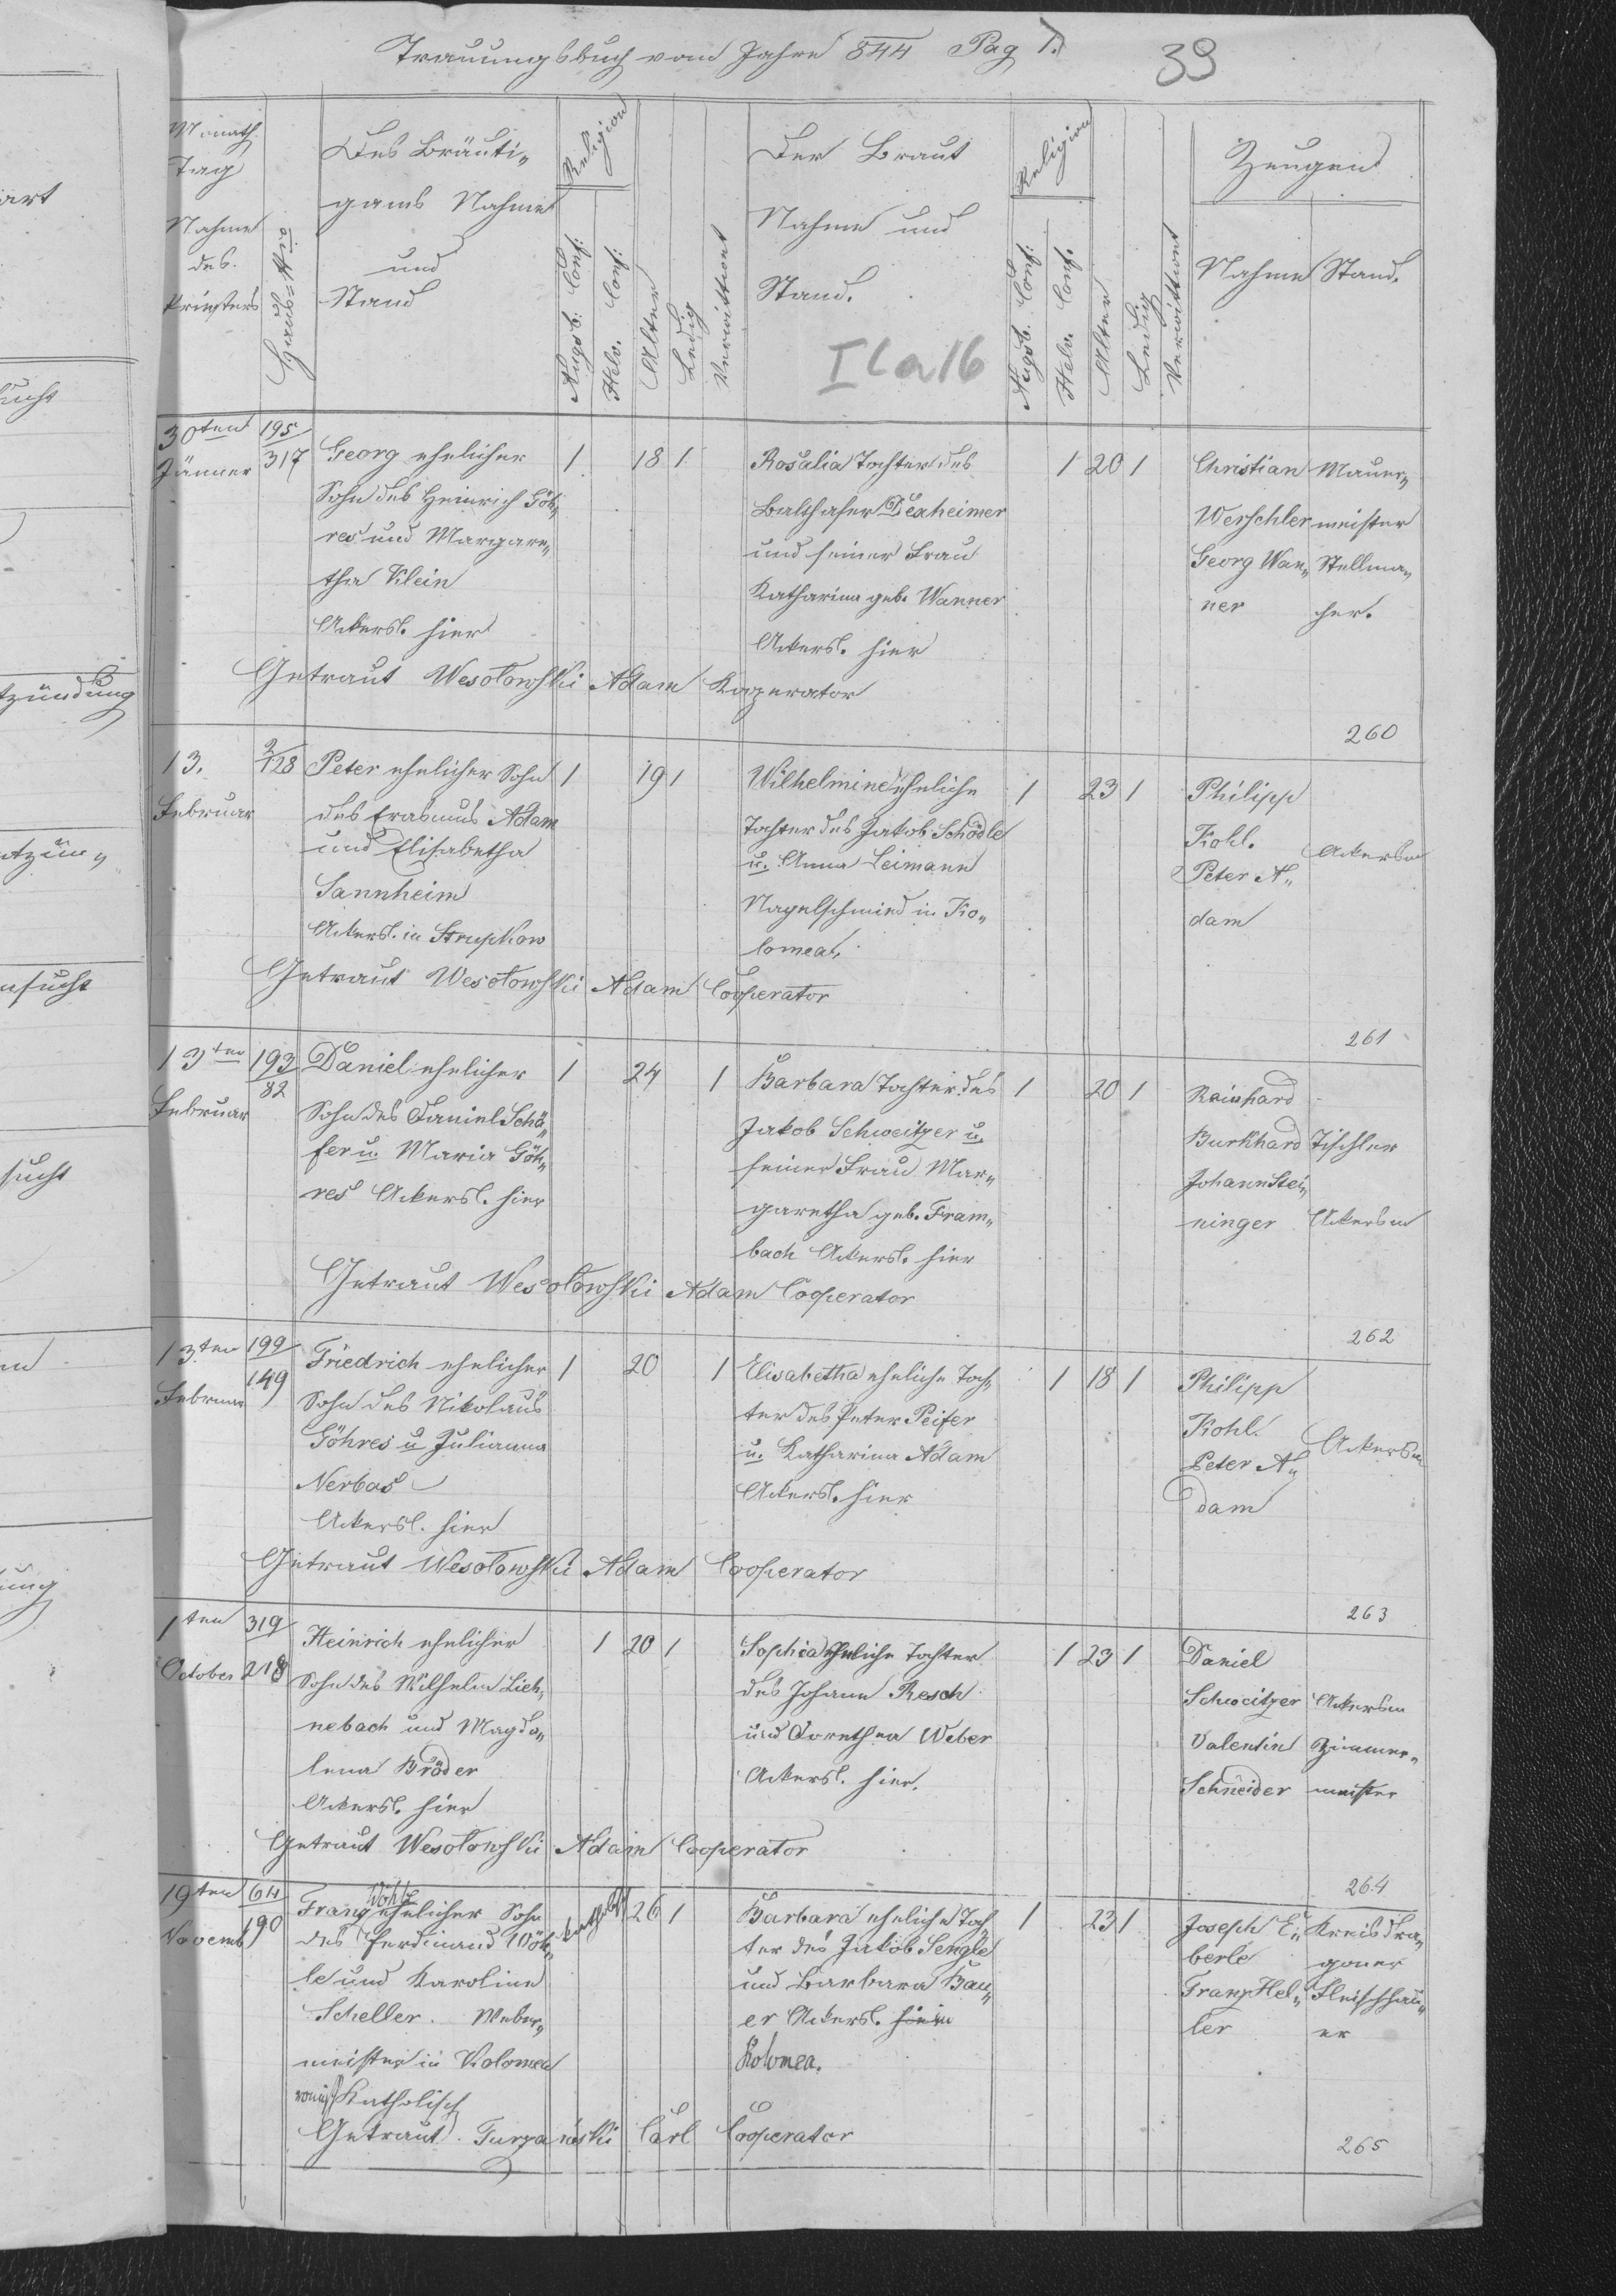 Trauungsbuch vom Jahre 844 Pag 1.
39
Monath
Tag
Nahme
des
Priesters
Haus-Nro
Des Bräuti„
gams Nahme
und
Stand
Religion
Augsb. Conf:
Helv. Conf:
Alter
Ledig
Verwittwet
Der Braut
Nahme und
Stand.
I La 16
Religion
Augsb. Conf:
Helv. Conf.
Alter
Ledig
Verwittwet
Zeugen
Nahme Stand.
30ten
Jänner
195
317
Georg ehelicher
Sohn des Heinrich Göh„
res und Margare„
tha Klein
Ackersl. hier
1 18 1
Rosalia Tochter des
Balthaser Dexheimer
und seiner Frau
Katharina geb. Wanner
Ackersl. hier
1 20 1
Christian Mauer„
Werschler meister
Georg Wan„ Stellma„
ner cher.
Getraut Wesołowski Adam Kooperator
260
13.
Februar
2
128
Peter ehelicher Sohn
des Erasmus Adam
und Elisabetha
Sannheim
Ackersl. in Strupkow
1 19 1
Wilhelmine eheliche
Tochter des Jakob Schödle
u. Anna Leimann
Nagelschmied in Ko„
lomea.
1 23 1
Philipp
Kohl.
Peter A„
dam
Ackersm
Getraut Wesołowski Adam Cooperator
261
13ten
Februar
193
82
Daniel ehelicher
Sohn des Daniel Schä„
fer u. Maria Göh„
res Ackersl. hier
1 24 1
Barbara Tochter des
Jakob Schweitzer u.
seiner Frau Mar„
garetha geb. Fram„
bach Ackersl. hier
1 20 1
Reinhard
Burkhard Tischler
Johann Stei„
ninger Ackersm
Getraut Wesołowski Adam Cooperator
262
13ten
Februar
199
149
Friedrich ehelicher
Sohn des Nikolaus
Göhres u Julianna
Nerbas
Ackersl. hier
1 20 1
Elisabetha eheliche Toch„
ter des Peter Peifer
u. Katharina Adam
Ackersl. hier
1 18 1
Philipp
Kohl.
Peter A„
dam
Ackersm
Getraut Wesołowski Adam Cooperator
263
1ten
October
319
218
Heinrich ehelicher
Sohn des Wilhelm Lich„
nebach und Magda„
lena Bröder
Ackersl. hier
1 20 1
Sophia eheliche Tochter
des Johann Resch
und Dorothea Weber
Ackersl. hier.
1 23 1
Daniel
Schweitzer Ackersm
Valentin Zimmer„
Schneider meister
Getraut Wesołowski Adam Cooperator
264
19ten
Novemb
64
190
Wöhle
Franz ehelicher Sohn
des Ferdinand Wöh„
le und Karoline
Scheller. Weber„
meister in Kolomea
römisch Katholisch
katholisch
26 1
Barbara eheliche Toch
ter des Jakob Sengle
und Barbara Bau„
er Ackersl. hier in
Kolomea.
1 23 1
Joseph E„ Kreisdra„
berle goner
Franz Hel„ Fleischhau„
ler er
Getraut Turzański Carl Cooperator
265